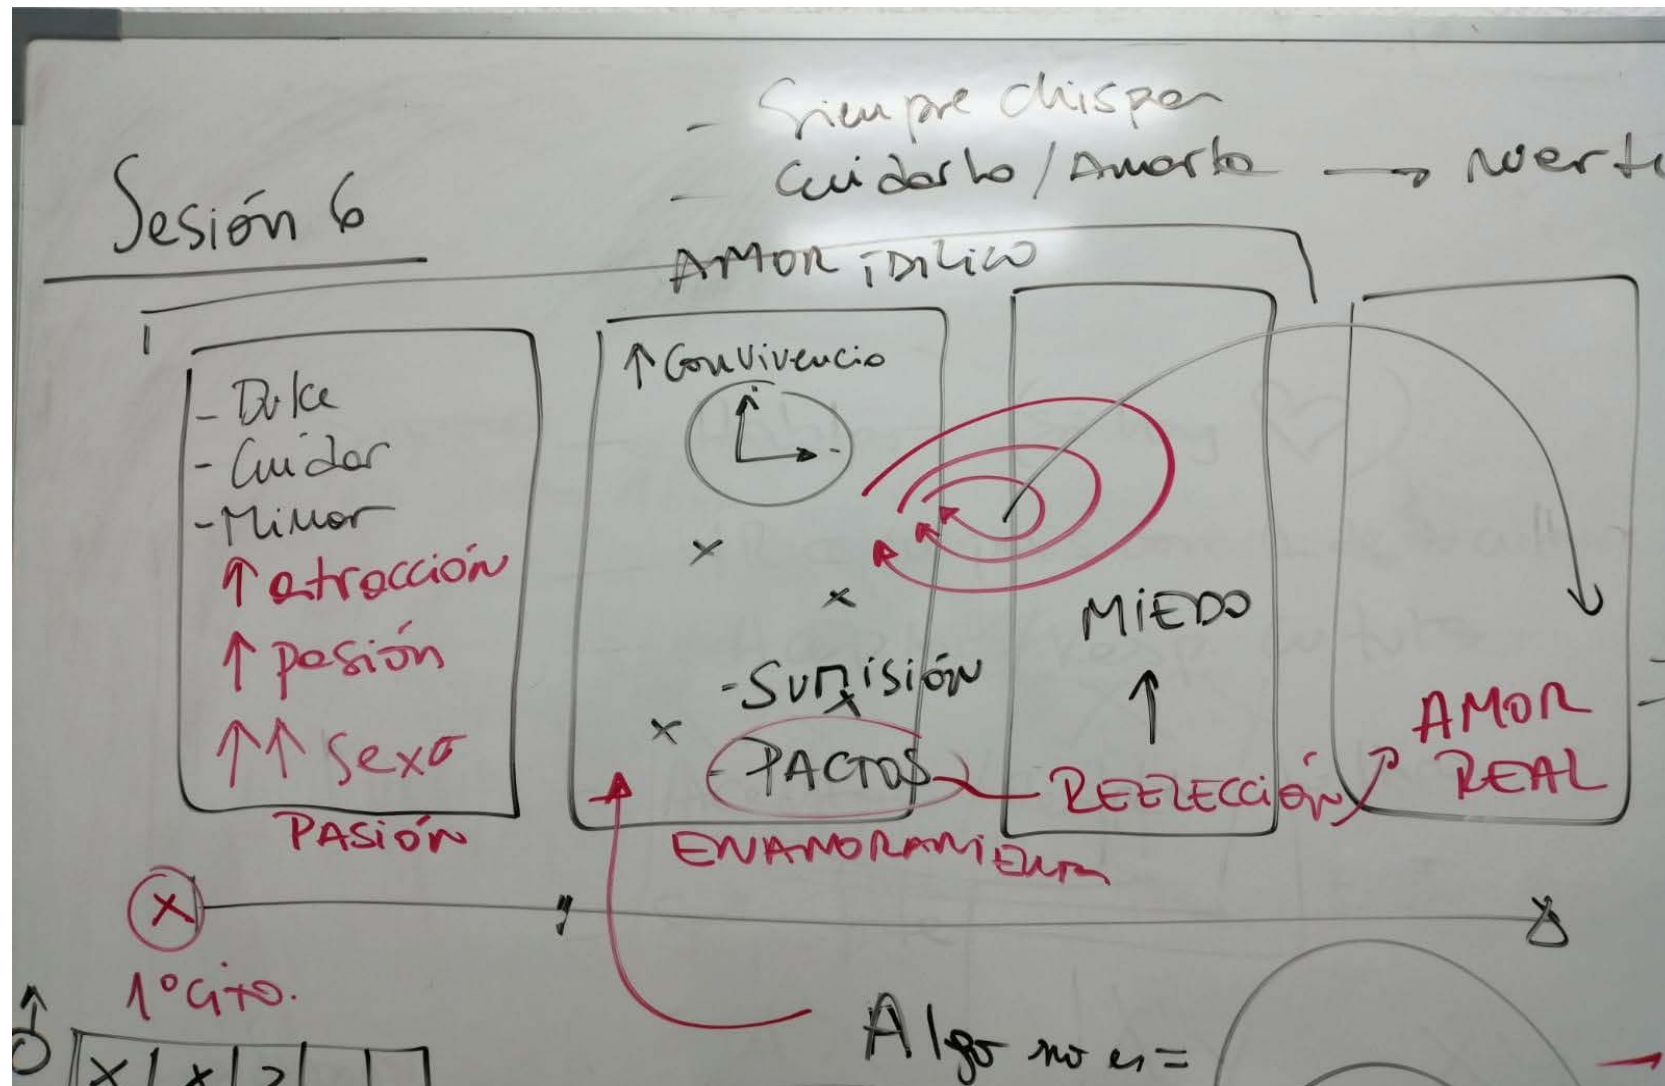 Sesión 6
- Siempre chispa
- Cuidarlo / Amarlo →
AMOR iDiLiCO
- Dulce
- Cuidar
- Mimar
↑ atracción
↑ pasión
↑↑ Sexo
PASIÓN
↑ Convivencia
x
x
x
- SUMisión
x
- PACTOS
ENAMORAMIENTO
MiEDO
↑
REELECCIÓN
AMOR
REAL
X
1º Cita.
Algo no es =
X | X | 2 |